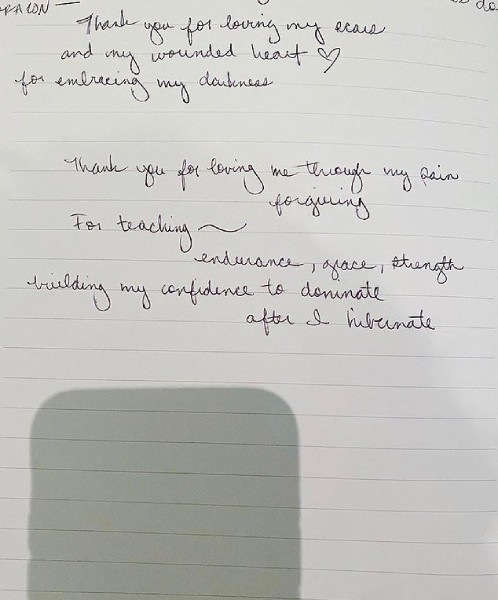 Thank you for loving my scars
and my wounded heart ♡
for embracing my darkness
Thank you for loving me through my pain
forgiving
For teaching ~
endurance, grace, strength
building my confidence to dominate
after I hibernate